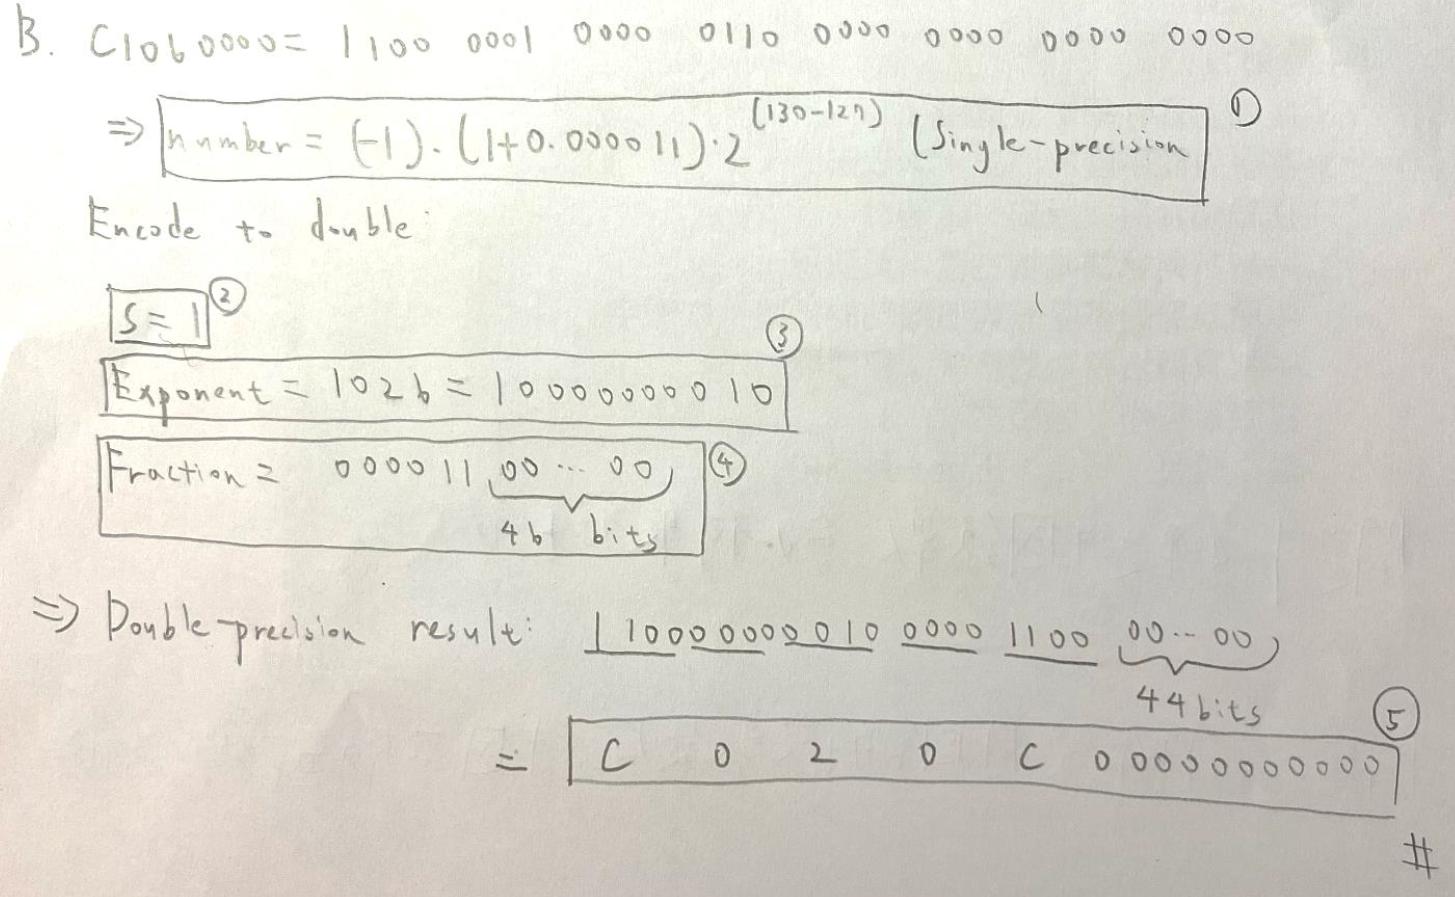 B. C1060000 = 1100 0001 0000 0110 0000 0000 0000 0000
⇒ number = (-1)·(1+0.000011)·2^(130-127) (Single-precision ①
Encode to double:
S = 1 ②
Exponent = 1026 = 10000000010 ③
Fraction = 000011 00...00 ④
46 bits
⇒ Double-precision result: 1 10000000010 0000 1100 00...00
44 bits
= C 0 2 0 C 00000000000 ⑤
#